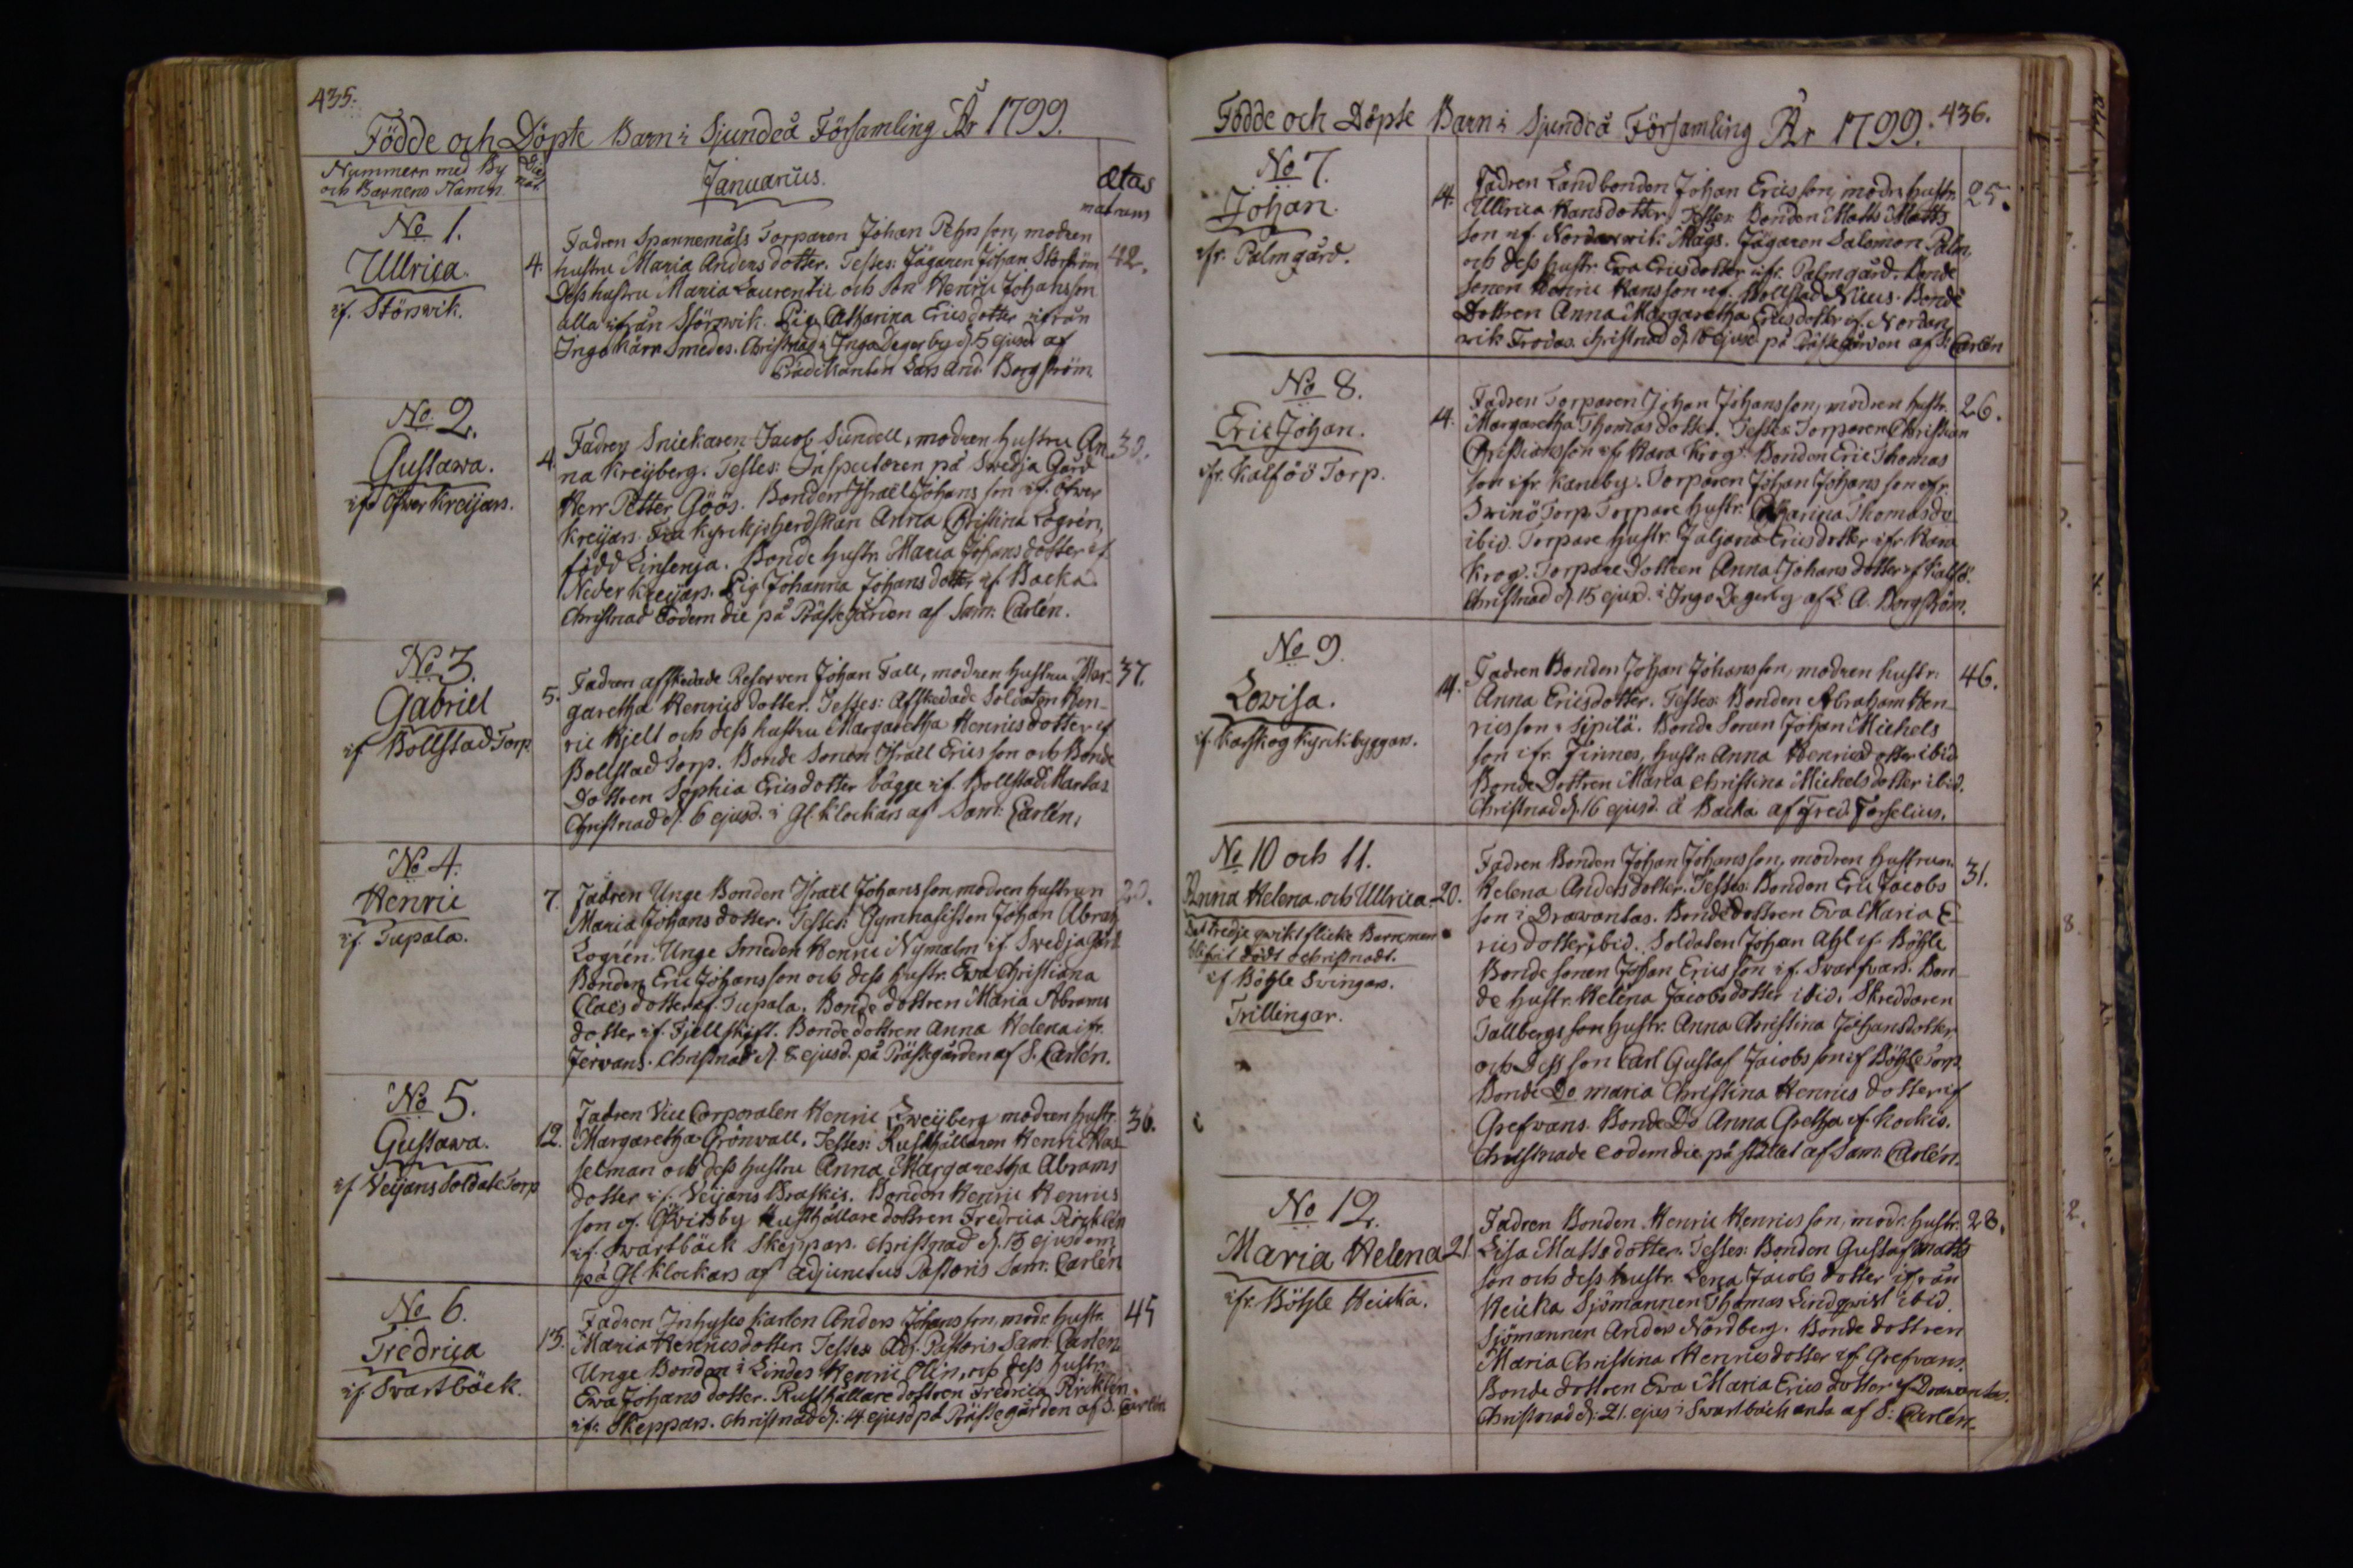 435.
Födde och Döpte Barn i Sjundeå Församling År 1799.
Nummern med By
och Barnens Namn.
Dies
nat.
Januarius.
ætas
matrum
No 1.
Ullrica.
if. Störsvik.
4.
Fadren Spannemåls Torparen Johan Pehrsson, modren
hustru Maria Andersdotter. Testes: Jägaren Johan Störström
Dess hustru Maria Laurentii och Son Henric Johansson
alla ifrån Störsvik. Pig. Catharina Ericsdotter ifrån
Ingo Smedes. Christnad i Inga Degerby d. 5 ejusd af
Lars And. Borgström
42.
No 2.
Gustawa.
if. Öfwer Kreijars.
4.
Fadren Snickaren Jacob Sundell, modren hustru An-
na Kreijberg. Testes: Inspectoren på Swedja Gård
Herr Petter Göös. Bonden Israel Johansson if. Öfwer
Kreijars. Fru Kyrckjoherdskan Anna Christina Logrén,
född Linsenja. Bonde hustr. Maria Johansdotter if.
Neder Kreijars. Pig. Johanna Johansdotter if. Backa.
Christnad Eodem die på Prästegården af Sam: Carlén.
No 3.
Gabriel
if Bollstad Torp
5.
Fadren afskedade Reserven Johan Fall, modren hustru Mar-
garetha Henricsdotter. Testes: Afskedade Soldaten Hen-
ric Kjell och dess hustru Margaretha Henricsdotter if
Bollstad Torp. Bonde Sonen Israel Ericsson och Bonde
Dottren Sophia Ericsdotter bägge if. Bollstad Martas
Christnad d. 6 ejusd. i Gl. Klockars af Sam: Carlén.
37.
No 4.
Henric
if. Tupala.
7.
Fadren Unge Bonden Israel Johansson, modren hustrun
Maria Johansdotter. Testes: Gymnasisten Johan Abrah.
Logrén. Unge Smeden Henric Nymalm if. Swedja Gård
Bonden Eric Johansson och dess hustr. Ewa Christiana
Claesdotter if. Tupala. Bonde dottren Maria Abrams
dotter if. Fjellskift. Bondedottren Anna Helena ifr.
Jerwans. Christnad d. 8 ejusd. på Prästegården af S. Carlén.
No 5.
Gustawa.
if Veijans Soldate Torp
12.
Fadren Vice Corporalen Henric Sweijberg modren hustr.
Margaretha Grönwall. Testes: Rusthållaren Henric Has-
selman och dess hustru Anna Margaretha Abrams
dotter if. Veijans Braskis. Bonden Henric Henrics
son if. Qvidsby Rusthållare dottren Fredrica Pircklén
if. Swartbäck Skeppars. Christnad d. 13 ejusdem
på Gl Klockars af Adjunctus Pastoris Sam: Carlén
36.
No 6.
Fredrica
if. Svartbäck.
13.
Fadren Inhyses Karlen Anders Johansson, modr. hustr.
Maria Henricsdotter. Testes: Adj. Pastoris Sam: Carlén.
Unge Bonden i Lindes Henric Olin, och dess hustru
Ewa Johansdotter. Rusthållare dottren Fredrica Pircklén
ifr. Skeppars. Christnad d. 14 ejusd på Prästegården af S. Carlén
45
Födde och Döpte Barn i Sjundeå Församling År 1799.
436.
No 7.
Johan.
ifr. Palmgård.
14.
Fadren Landbonden Johan Ericsson, modr. hustr.
Ullrica Hansdotter. Testes: Bonden Matts Matts
son if. Nordanvik Mågs. Jägaren Salomon Palm,
och dess hustr. Ewa Ericsdotter ifr. Palmgård. Bonde
sonen Henric Hansson if. Bollstad Nuus. Bonde
Dottren Anna Margaretha Ericsdotter if. Nordan-
wik Frodas. Christnad d. 16 ejusd på Prästegården af S. Carlén
25.
No 8.
Eric Johan.
ifr. Kalföö Torp.
14.
Fadren Torparen Johan Johansson, modren hustr.
Margaretha Thomasdotter. Testes: Torparen Christian
Christiansson if. Kara Krog. Bonden Eric Thomas
son ifr. Kanby. Torparen Johan Johansson ifr.
Svinö Torp. Torpare hustr. Catharina Thomasdo.
ibid. Torpare hustr. Juljana Ericsdotter ifr. Kara
Krog. Torpare Dottren Anna Johansdotter if Kalfö.
Christnad d. 15 ejusd. i Ingo Degerby af L. A. Borgström.
26.
No 9.
Lovisa.
if Karskog Kyrckbyggars.
14.
Fadren Bonden Johan Johansson, modren hustr:
Anna Ericsdotter. Testes: Bonden Abraham Hen-
ricsson i Sipilä. Bonde Sonen Johan Michels
son ifr. Finnes, hustr. Anna Henricsdotter ibid
Bonde Dottren Maria Christina Michelsdotter ibid.
Christnad d. 16 ejusd. å Backa af Fred. Forselius.
46.
No 10 och 11.
Anna Helena. och Ullrica
Det tredje qwikt flicke Barnemen
blifvit dödt ochristnadt.
if Böhle Svingars.
Trillingar.
20.
Fadren Bonden Johan Johansson, modren hustrun
Helena Andersdotter. Testes: Bonden Eric Jacobs
son i Drawantas. Bondedottren Eva Maria E-
ricsdotter, ibid. Soldaten Johan Ahl if. Böhle
Bonde sonen Johan Ericsson if. Svarfvars. Bon-
de hustr. Helena Jacobsdotter ibid. Skreddaren
Tallbergs son hustr. Anna Christina Johansdotter,
och Dess son Carl Gustaf Jacobsson if Böhle Torp
Bonde Do maria Christina Henricsdotter if
Grefvans. Bonde Do Anna Gretha if. Kockis.
Christnade eodem die på stället af Sam: Carlén.
31.
No 12.
Maria Helena
ifr. Böhle Heicka.
21
Fadren Bonden Henric Henricsson, modr. hustr.
Lisa Mattsdotter. Testes: Bonden Gustaf Matts
son och dess hustr. Lena Jacobsdotter ifrån
Heicka Sjömannen Thomas Lindqwist ibid.
Sjömannen Anders Nordberg. Bonde dottren
Maria Christina Henricsdotter if. Grefvans.
Bonde dottren Ewa Maria Ericsdotter if Drawantas.
Christnad d. 21. ejus i Swartbäck af S: Carlén.
28.